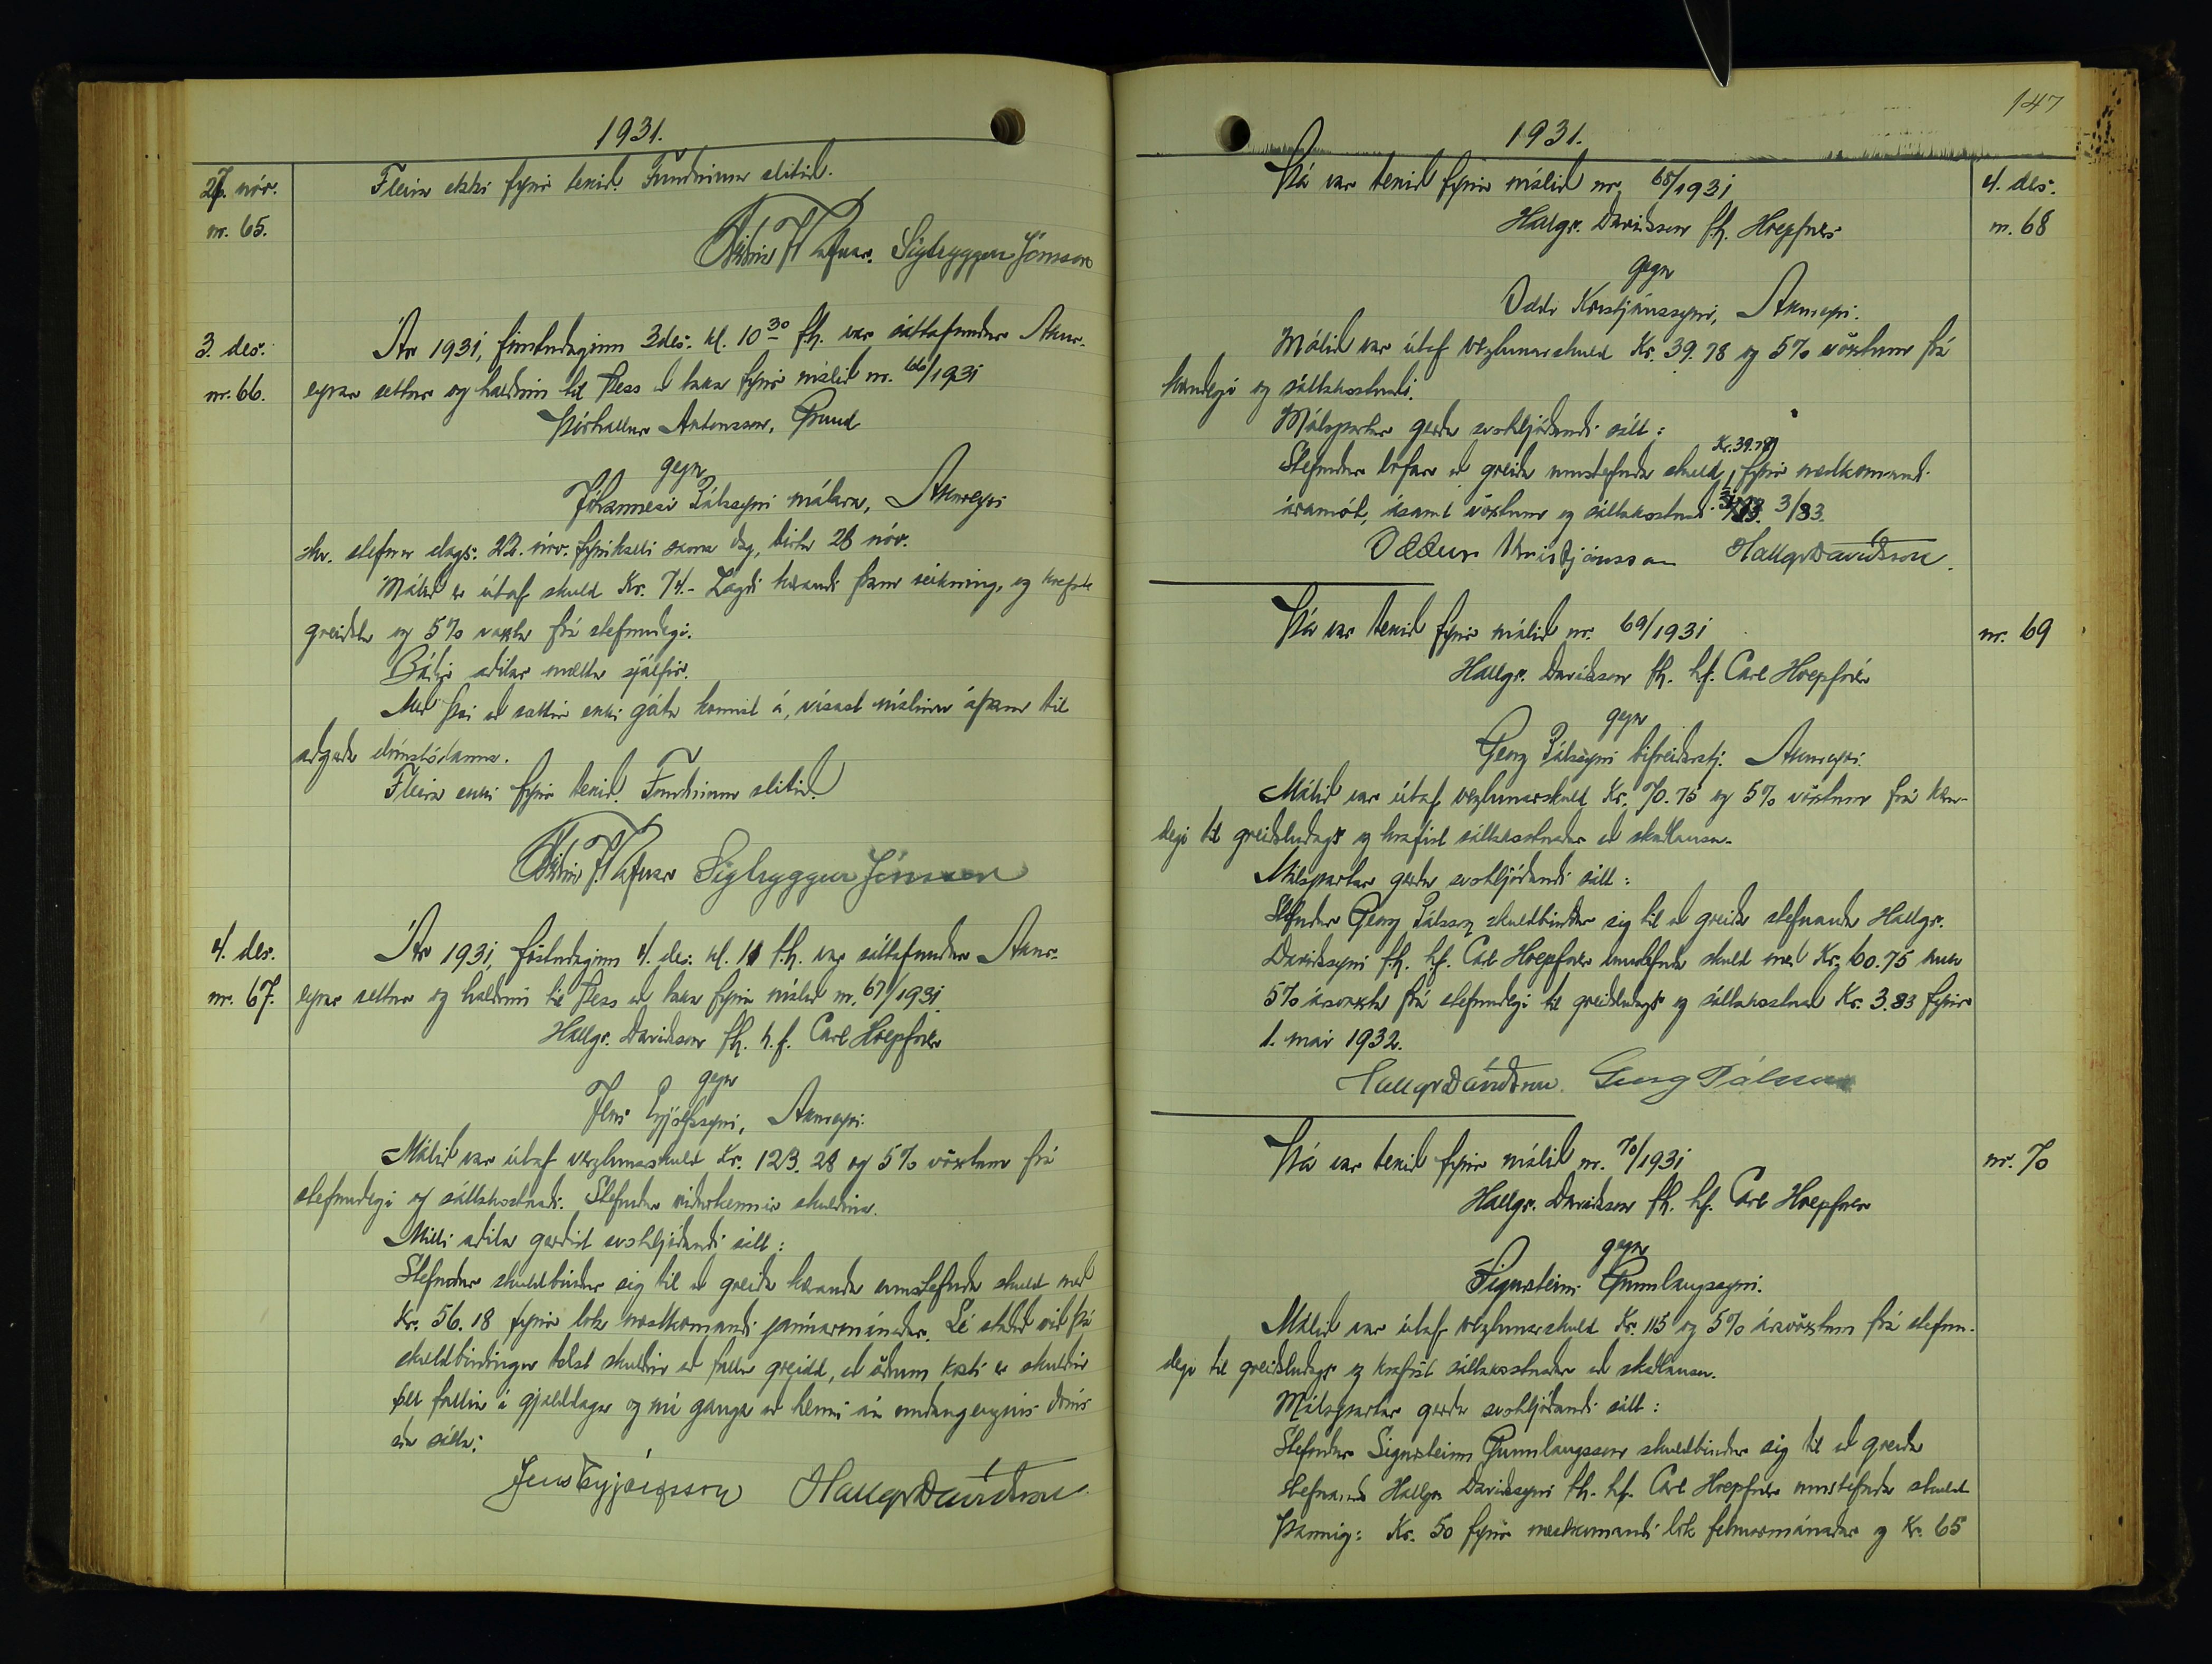 1931.
27. nóv.
nr. 65.
Fleira ekki fyrir tekið. Fundinum slitið.
Sigtryggur Jónsson
3. des.
nr. 66.
Ár 1931, fimtudaginn 3 des. kl. 10 30 fh. var sáttafundur Akur-
eyrar settur og haldinn til þess að taka fyrir málið nr. 66/1931
Þórhallur Antonsson, Grund
gegn
Jóhannesi Pálssyni málara, Akureyri
skv. stefnu dags. 22. nóv. fyrirkalli sama dag, birtu 28 nóv.
Málið er útaf skuld Kr. 74.- Lagði kærandi fram reikning, og krefst
greiðslu og 5% vaxta frá stefnudegi.
Báðir aðilar mættu sjálfir.
Með því að sættir ekki gátu komist á, vísast málinu áfram til
aðgerða dómstólanna.
Fleira ekki fyrir tekið. Fundinum slitið.
Sigtryggur Jónsson
4. des.
nr. 67.
Ár 1931, föstudaginn 4. des. kl. 10 f.h. var sáttafundur Akur-
eyrar settur og haldinn til þess að taka fyrir málið nr. 67/1931
Hallgr. Davíðsson fh. h.f. Carl Hoepfner
gegn
Jens Eyjólfssyni, Akureyri.
Málið var útaf verzlunarskuld Kr. 123.28 og 5% vöxtum frá
stefnudegi og sáttakostnaði. Stefndur viðurkennir skuldina.
Milli aðila gerðist svohljóðandi sátt:
Stefndur skuldbindur sig til að greiða kæranda umstefnda skuld með
Kr. 56.18 fyrir lok næstkomandi janúarmánaðar. Sé staðið við þá
skuldbindingu telst skuldin að fullu greidd, að öðrum kosti er skuldin
öll fallin í gjalddaga og má ganga að henni án undangengins dóms
eða sátta.
Jens Eyjólfsson Hallgr Davíðsson
147
1931.
4. des.
nr. 68
Þá var tekið fyrir málið nr. 68/1931
Hallgr. Davíðsson f.h. Hoepfners
gegn
Oddi Kristjánssyni, Akureyri.
Málið var útaf verzlunarskuld Kr. 39.78 og 5% vöxtum frá
kærudegi og sáttakostnaði.
Málspartar gerðu svohljóðandi sátt:
Kr. 39.78
Stefndur lofar að greiða umstefnda skuld, fyrir næstkomandi
áramót, ásamt vöxtum og sáttakostnað 3/83.
Oddur Kristjánsson Hallgr Davíðsson.
nr. 69
Þá var tekið fyrir málið nr. 69/1931
Hallgr. Davíðsson fh. hf. Carl Hoepfner
gegn
Georg Pálssyni bifreiðarstj. Akureyri.
Málið var útaf verzlunarskuld Kr. 70.75 og 5% vöxtum frá kæru-
degi til greiðsludags og krafist sáttakostnaðar að skaðlausu.
Málspartar gerðu svohljóðandi sátt:
Stefndur Georg Pálsson skuldbindur sig til að greiða stefnanda Hallgr.
Davíðssyni f.h. h.f. Carl Hoepfner umstefnda skuld með Kr. 60.75 auk
5% ársvaxta frá stefnudegi til greiðsludags og sáttakostnað Kr. 3.83 fyrir
1. maí 1932.
Hallgr Davíðsson. Georg Pálsson
nr. 70
Þá var tekið fyrir málið nr. 70/1931
Hallgr. Davíðsson fh. hf. Carl Hoepfner
gegn
Sigursteini Gunnlaugssyni.
Málið var útaf verzlunarskuld Kr. 115 og 5% ársvöxtum frá stefnu-
degi til greiðsludags og krafist sáttakostnaðar að skaðlausu.
Málspartar gerðu svohljóðandi sátt:
Stefndur Sigursteinn Gunnlaugsson skuldbindur sig til að greiða
stefnanda Hallgr. Davíðssyni fh. hf. Carl Hoepfner umstefnda skuld
þannig: Kr. 50 fyrir næstkomandi lok febrúarmánaðar og Kr. 65